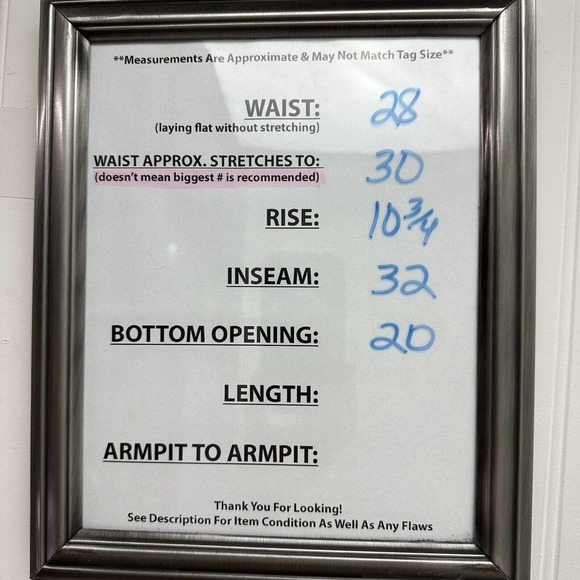 **Measurements Are Approximate & May Not Match Tag Size**
WAIST: 28
(laying flat without stretching)
WAIST APPROX. STRETCHES TO: 30
(doesn't mean biggest # is recommended)
RISE: 10 3/4
INSEAM: 32
BOTTOM OPENING: 20
LENGTH:
ARMPIT TO ARMPIT:
Thank You For Looking!
See Description For Item Condition As Well As Any Flaws